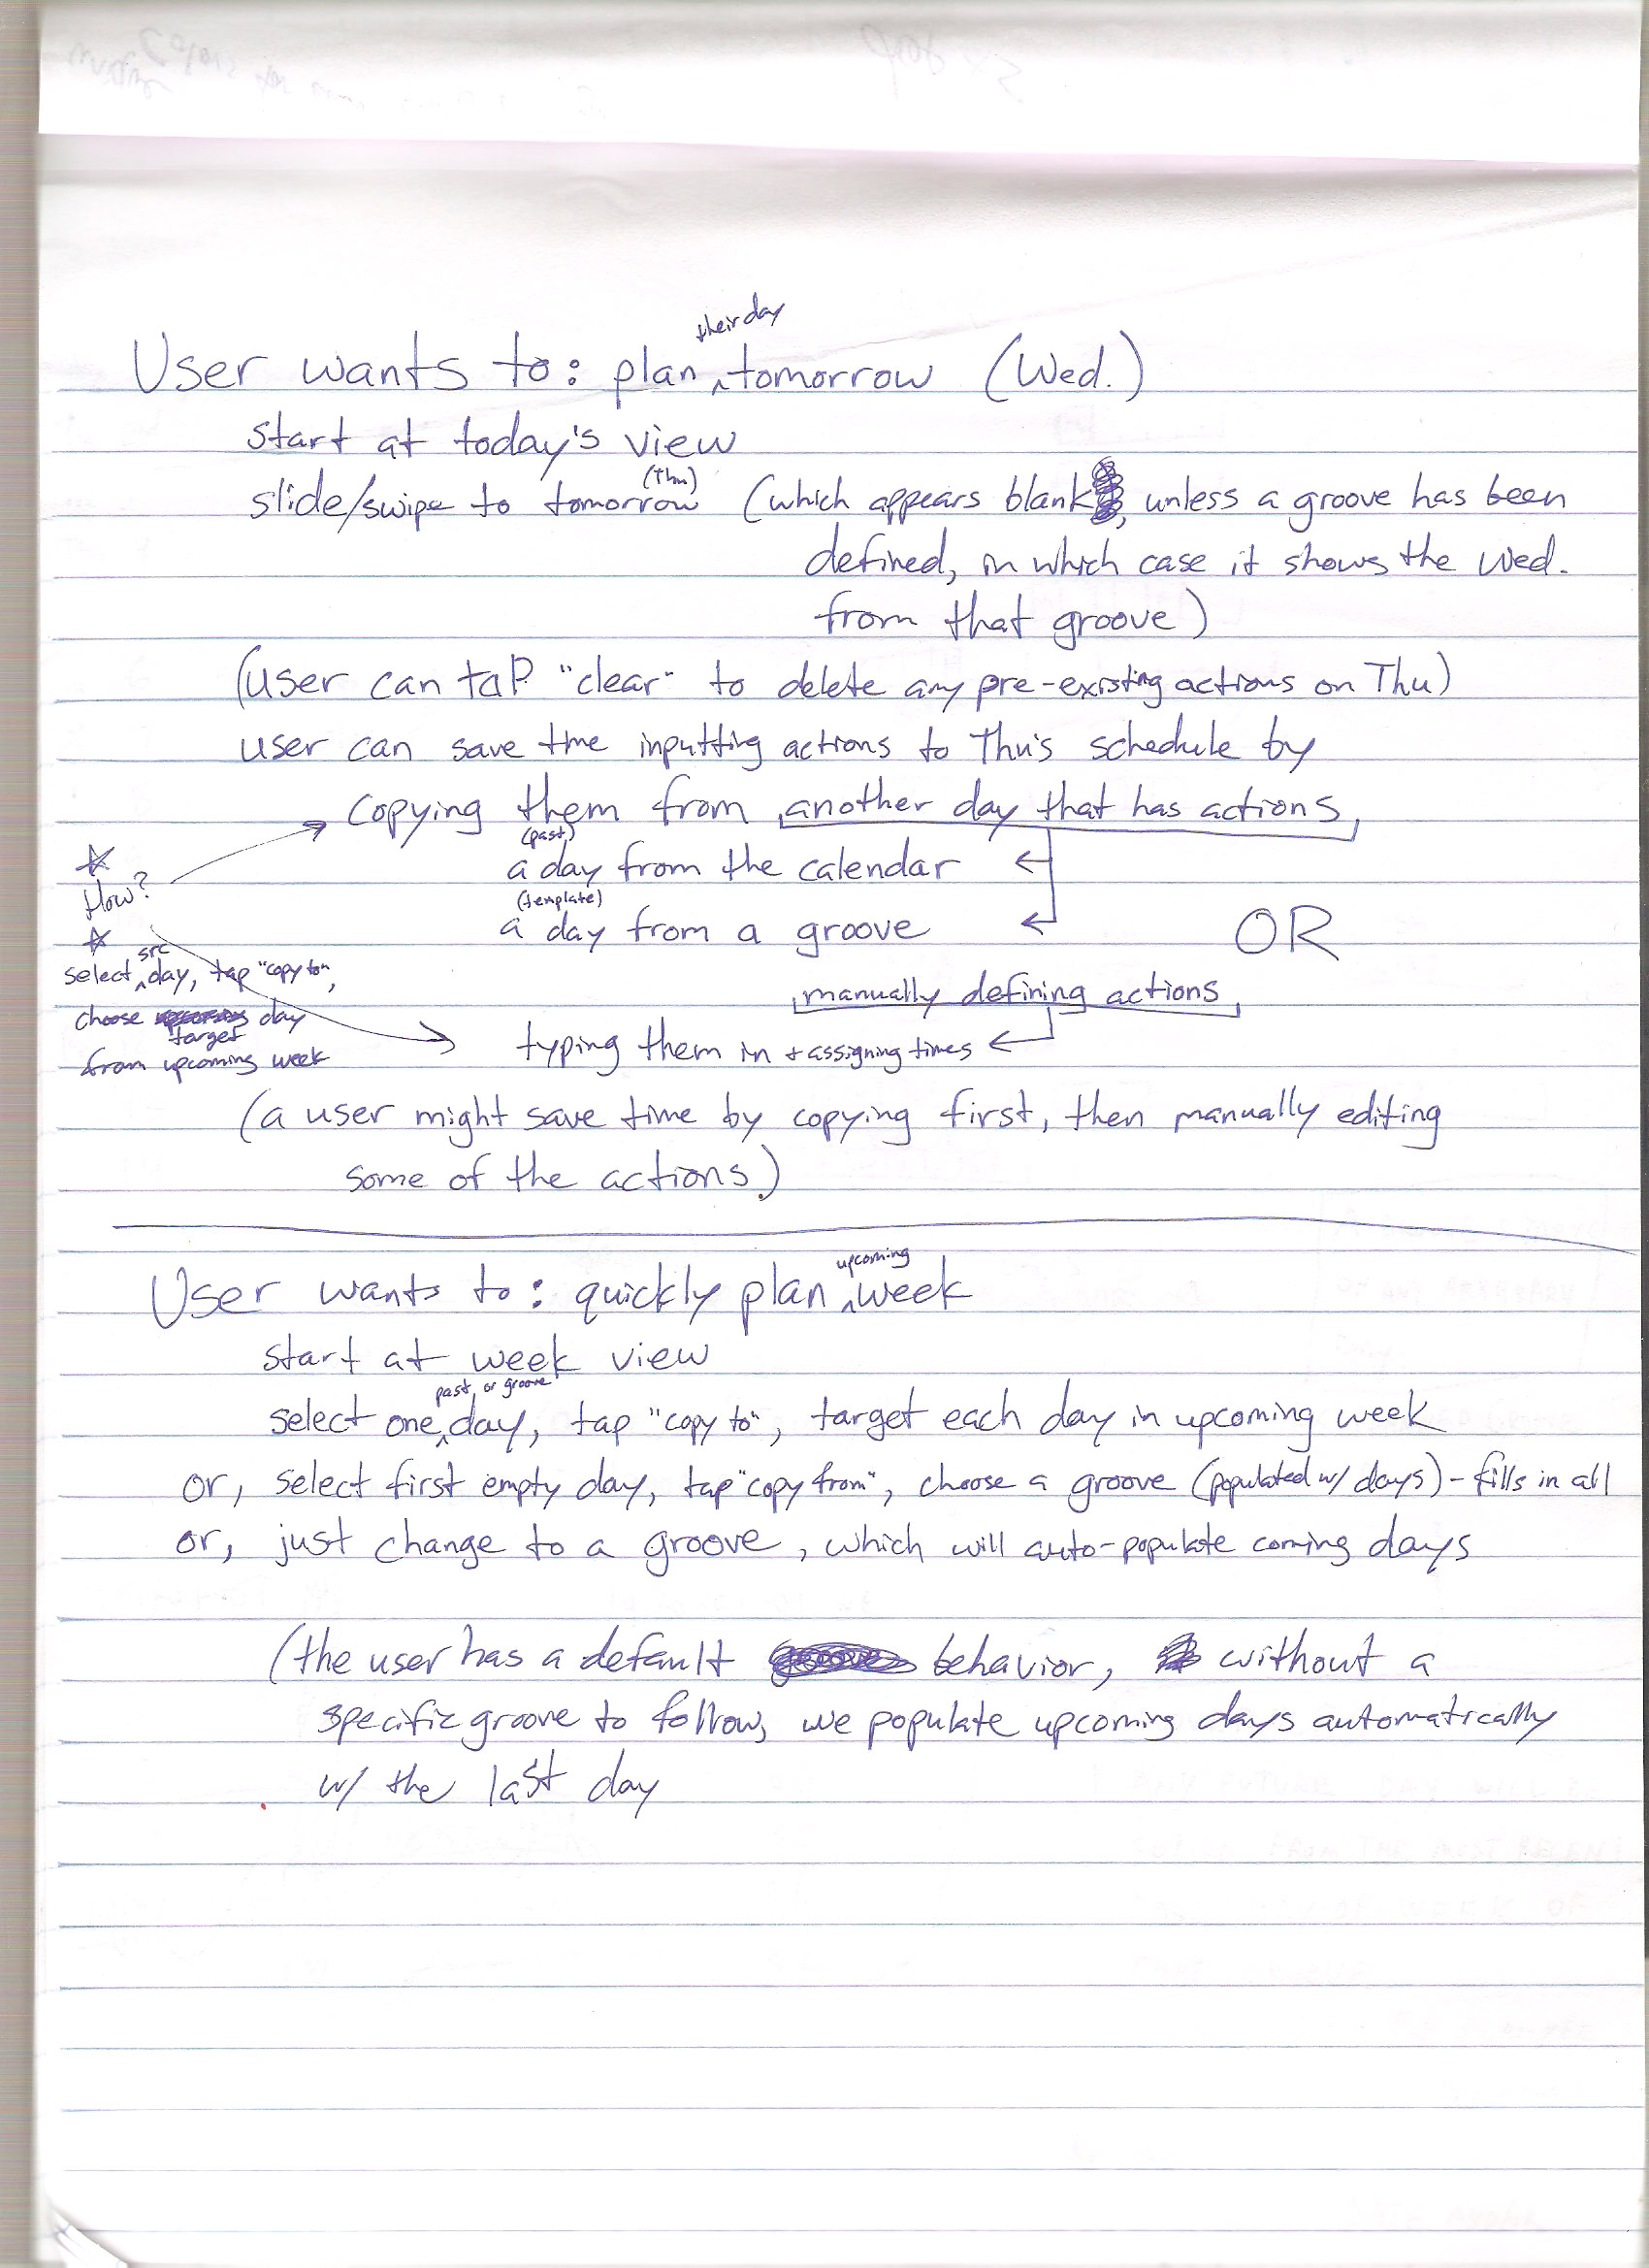 User wants to: plan their day tomorrow (Wed.)
start at today's view
slide/swipe to tomorrow (Thu) (which appears blank, unless a groove has been
defined, in which case it shows the Wed.
from that groove)
(user can tap "clear" to delete any pre-existing actions on Thu)
user can save time inputting actions to Thu's schedule by
copying them from another day that has actions,
a (past) day from the calendar
a (template) day from a groove
OR
manually defining actions,
typing them in + assigning times
☆
How?
☆
select src day, tap "copy to",
choose target day
from upcoming week
(a user might save time by copying first, then manually editing
some of the actions.)
User wants to: quickly plan upcoming week
start at week view
select one past, or groove day, tap "copy to", target each day in upcoming week
or, select first empty day, tap "copy from", choose a groove (populated w/ days) - fills in all
or, just change to a groove, which will auto-populate coming days
(the user has a default behavior, without a
specific groove to follow, we populate upcoming days automatically
w/ the last day